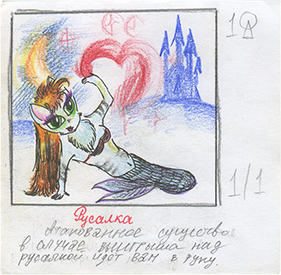 1
Русалка
1/1
Атакованное существо
в случае выигрыша над
русалкой идёт вам в руку.